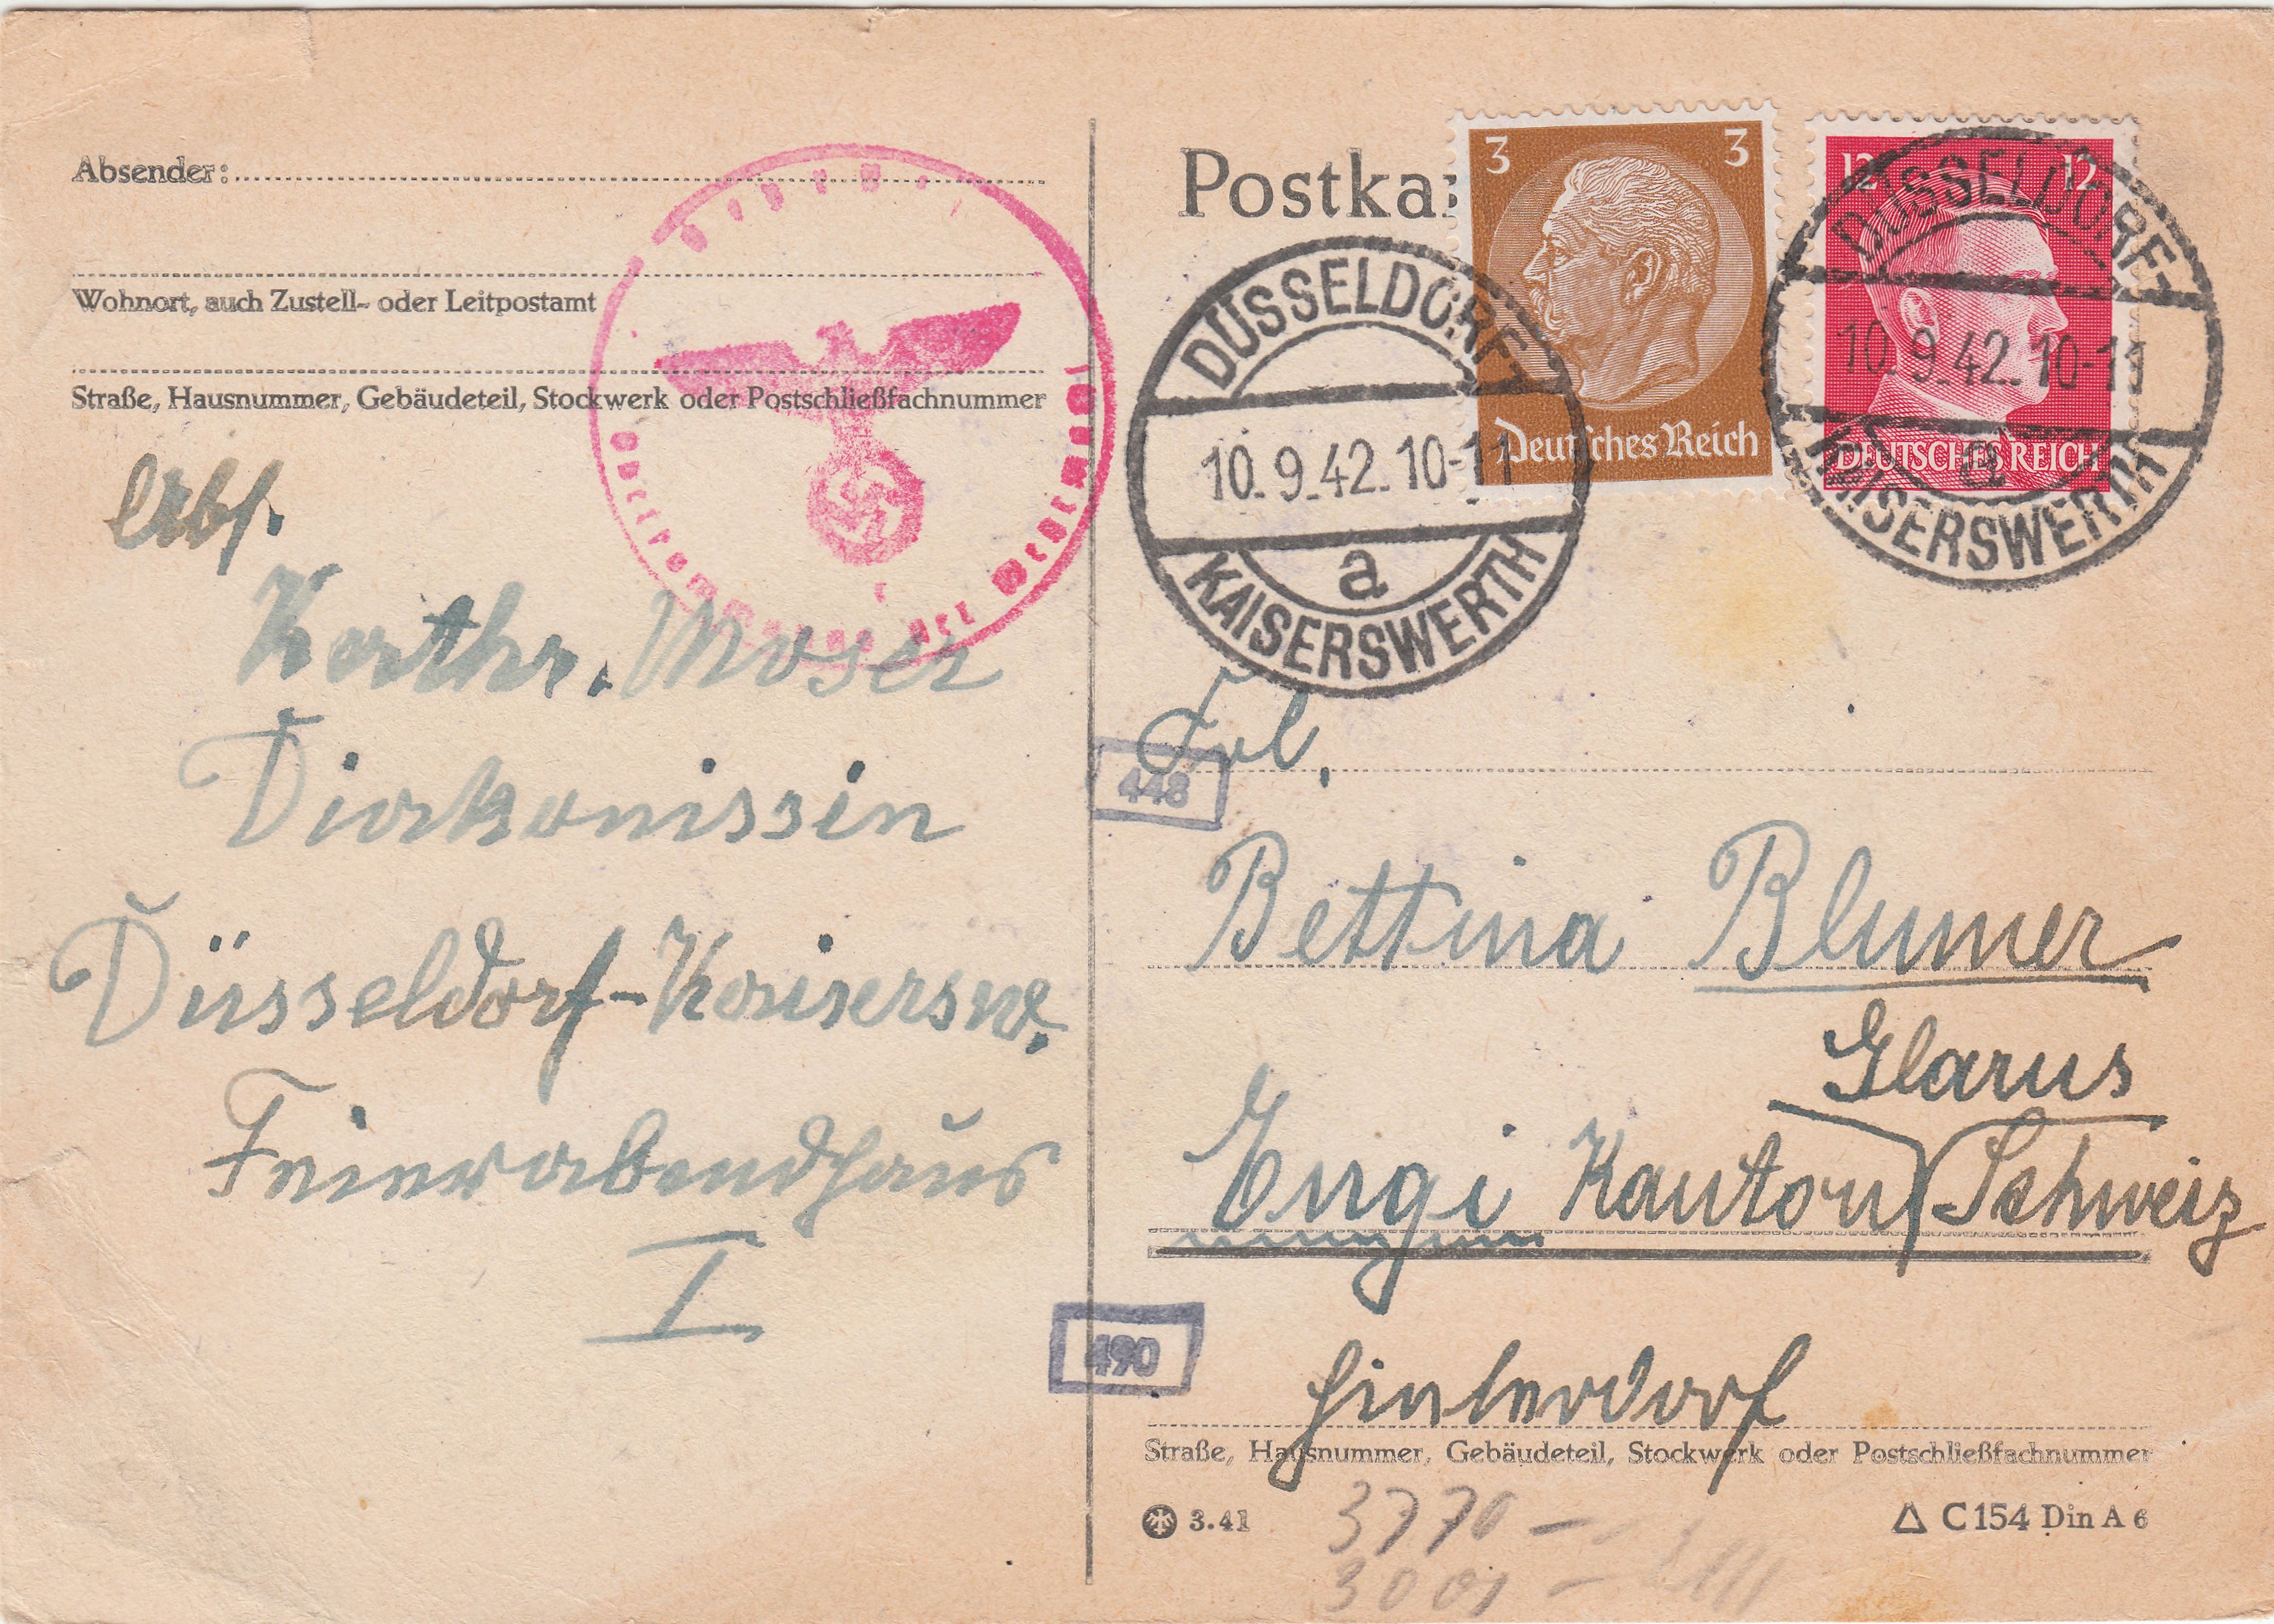 Absender:
Wohnort, auch Zustell- oder Leitpostamt
Straße, Hausnummer, Gebäudeteil, Stockwerk oder Postschließfachnummer
Oberkommando der Wehrmacht
Abs.
Kathr. Moser
Diakonissin
Düsseldorf-Kaisersw.
Feierabendhaus
I
Postka
3 3
Deutsches Reich
12 12
DEUTSCHES REICH
DÜSSELDORF-
10.9.42.10-11
a
KAISERSWERTH
DÜSSELDORF-
10.9.42.10-11
a
KAISERSWERTH
448
Frl.
Bettina Blumer
Glarus
Engi Kanton Schweiz
490
Hinterdorf
Straße, Hausnummer, Gebäudeteil, Stockwerk oder Postschließfachnummer
3.41
C 154 Din A 6
3770 -